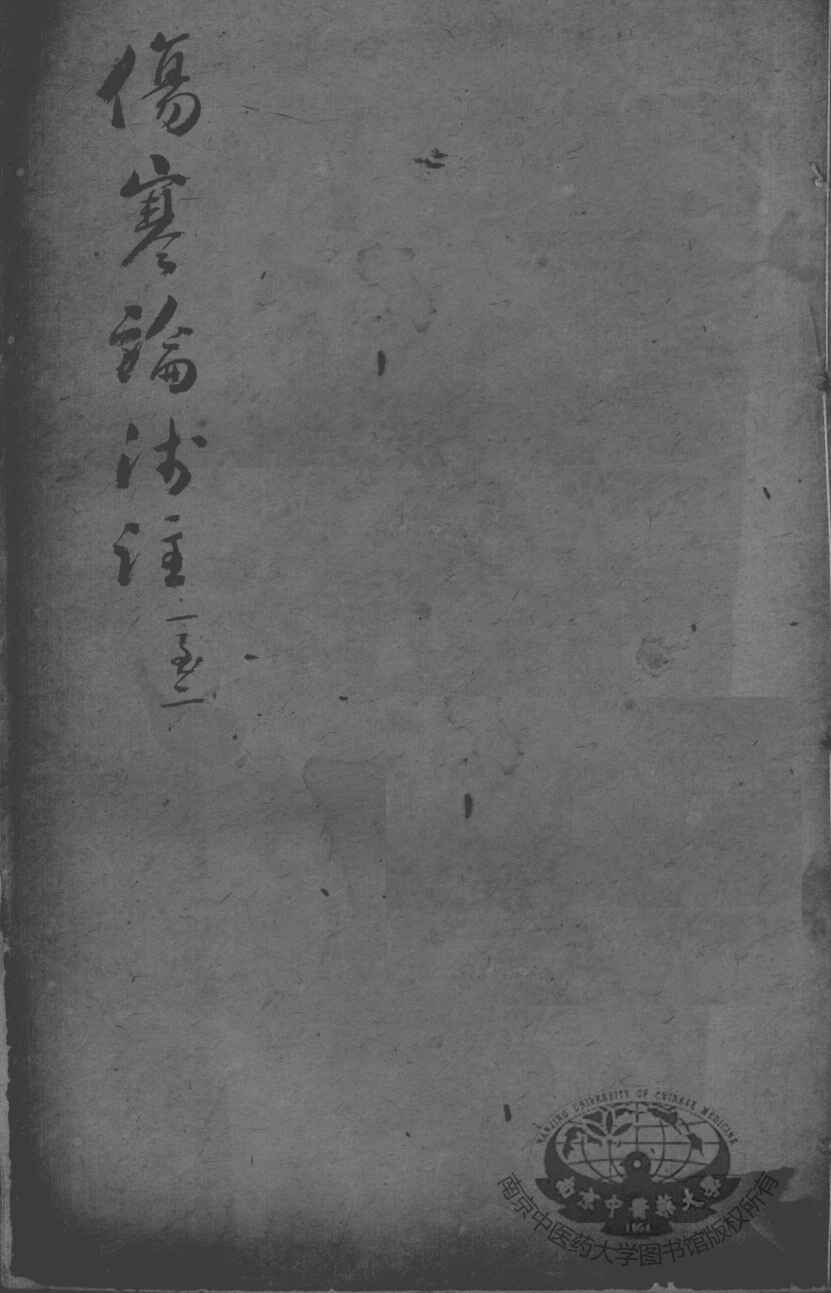 傷寒論淺註
一至二
NANJING UNIVERSITY OF CHINESE MEDICINE
南京中醫藥大學
1954
南京中医药大学图书馆版权所有